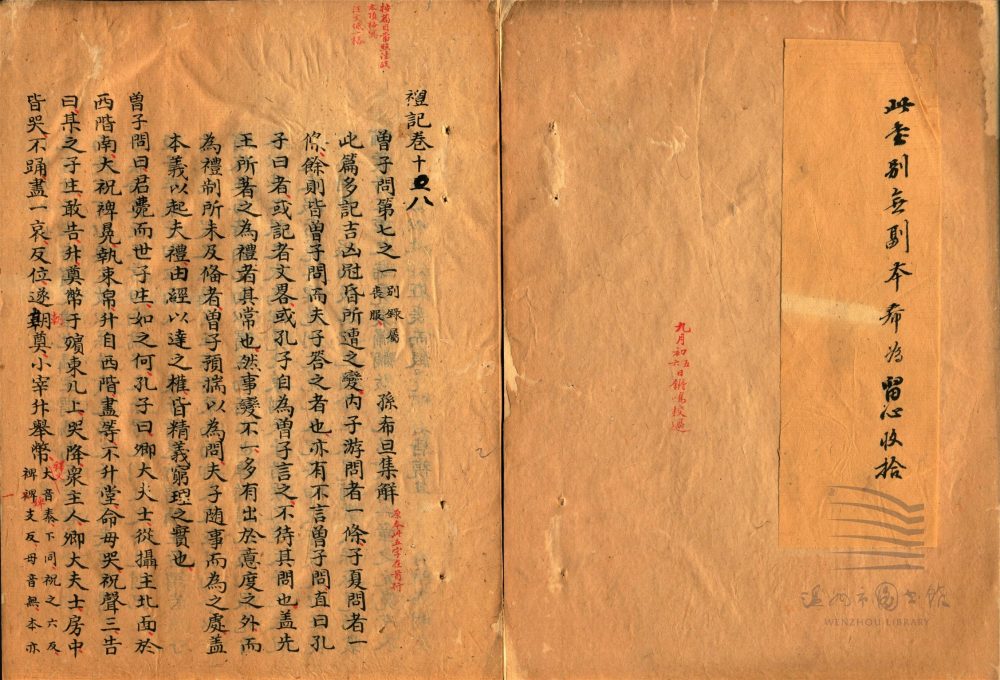 此書別無副本希為留心收拾
九月初五六日鏘鳴校過
溫州市圖書館
WENZHOU LIBRARY
禮記卷十八
曾子問第七之一 別錄屬喪服 孫希旦集解
此篇多記吉凶冠昏所遭之變內子游問者一條子夏問者一
條餘則皆曾子問而夫子答之者也亦有不言曾子問直曰孔
子曰者或記者文畧或孔子自為曾子言之不待其問也蓋先
王所著之為禮者其常也然事變不一多有出於意度之外而
為禮制所未及備者曾子預揣以為問夫子隨事而為之處蓋
本義以起夫禮由經以達之權皆精義窮理之實也
曾子問曰君薨而世子生如之何孔子曰卿大夫士從攝主北面於
西階南大祝裨冕執束帛升自西階盡等不升堂命毋哭祝聲三告
曰某之子生敢告升奠幣于殯東几上哭降衆主人卿大夫士房中
皆哭不踊盡一哀反位遂朝奠小宰升舉幣 大音泰下同祝之六反
裨婢支反毋音無本亦